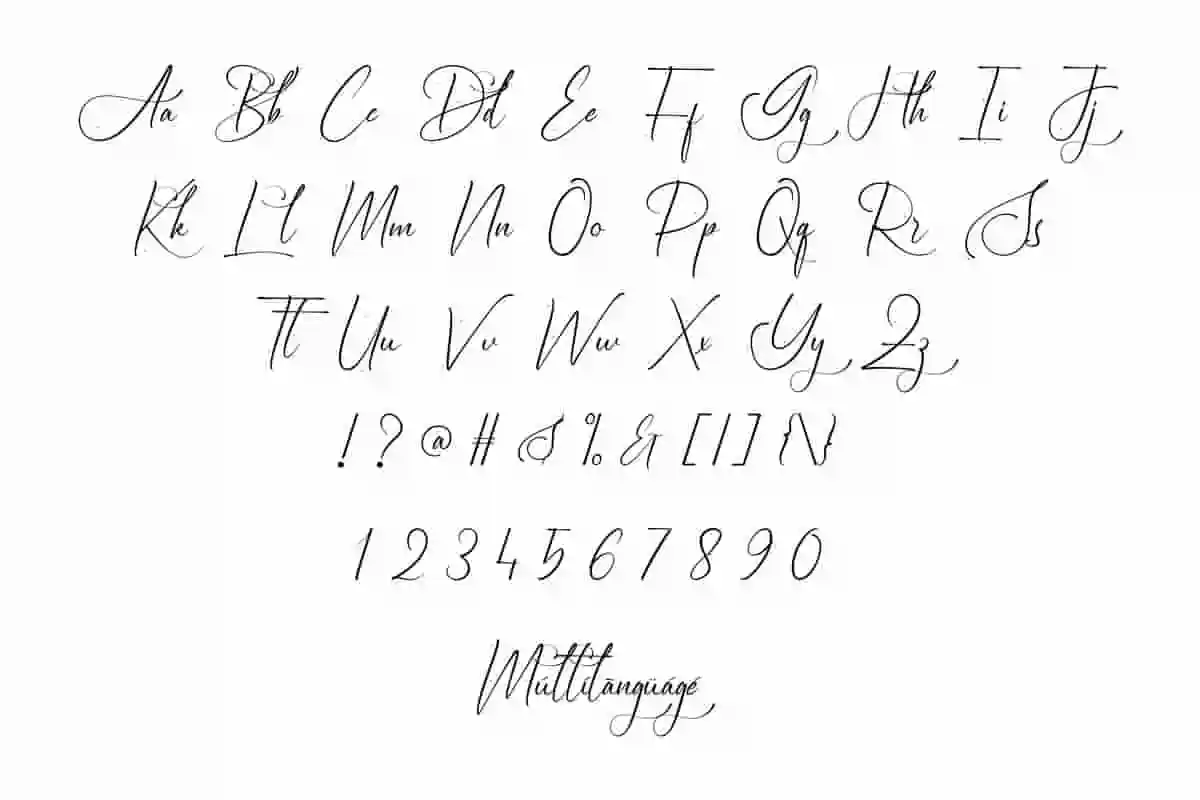 Aa Bb Cc Dd Ee Ff Gg Hh Ii Jj
Kk Ll Mm Nn Oo Pp Qq Rr Ss
Tt Uu Vv Ww Xx Yy Zz
! ? @ # $ % & [ | ] { \ }
1 2 3 4 5 6 7 8 9 0
Múltílāngüágé